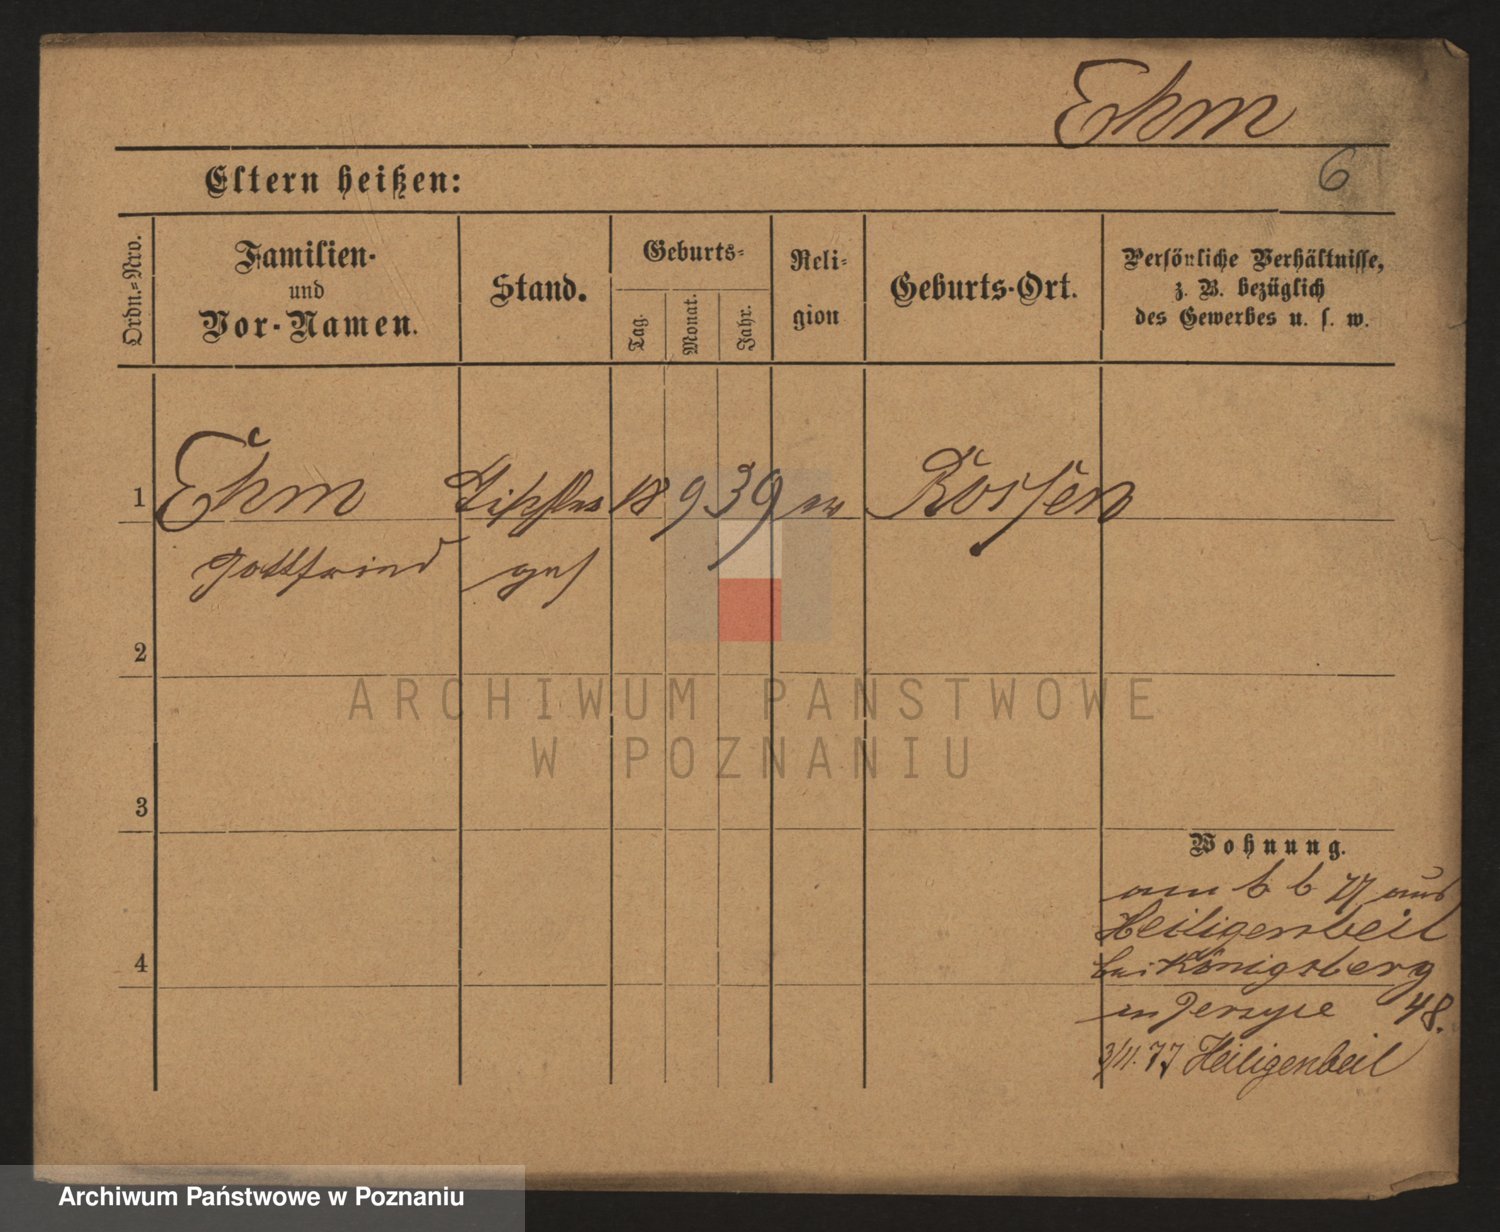 Ehm
6
Eltern heißen:
Ordn.=Nro.
Familien-
und
Vor-Namen.
Stand.
Geburts-
Tag.
Monat.
Jahr.
Reli-
gion
Geburts-Ort.
Persönliche Verhältnisse,
z. B. bezüglich
des Gewerbes u. s. w.
1
Ehm Tischler 18 9 39 ev
Gottfried ges
2
ARCHIWUM PAŃSTWOWE
W POZNANIU
3
Wohnung.
am 6 6 77 aus
Heiligenbeil
4
bei Königsberg
in Jersyce 48.
3/11. 77 Heiligenbeil
Archiwum Państwowe w Poznaniu